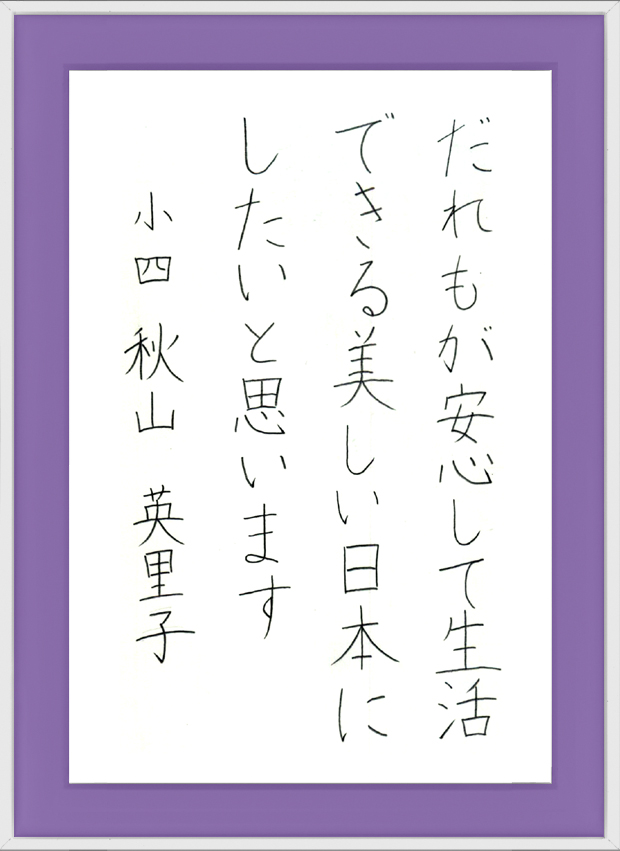 だれもが安心して生活
できる美しい日本に
したいと思います
小四 秋山 英里子